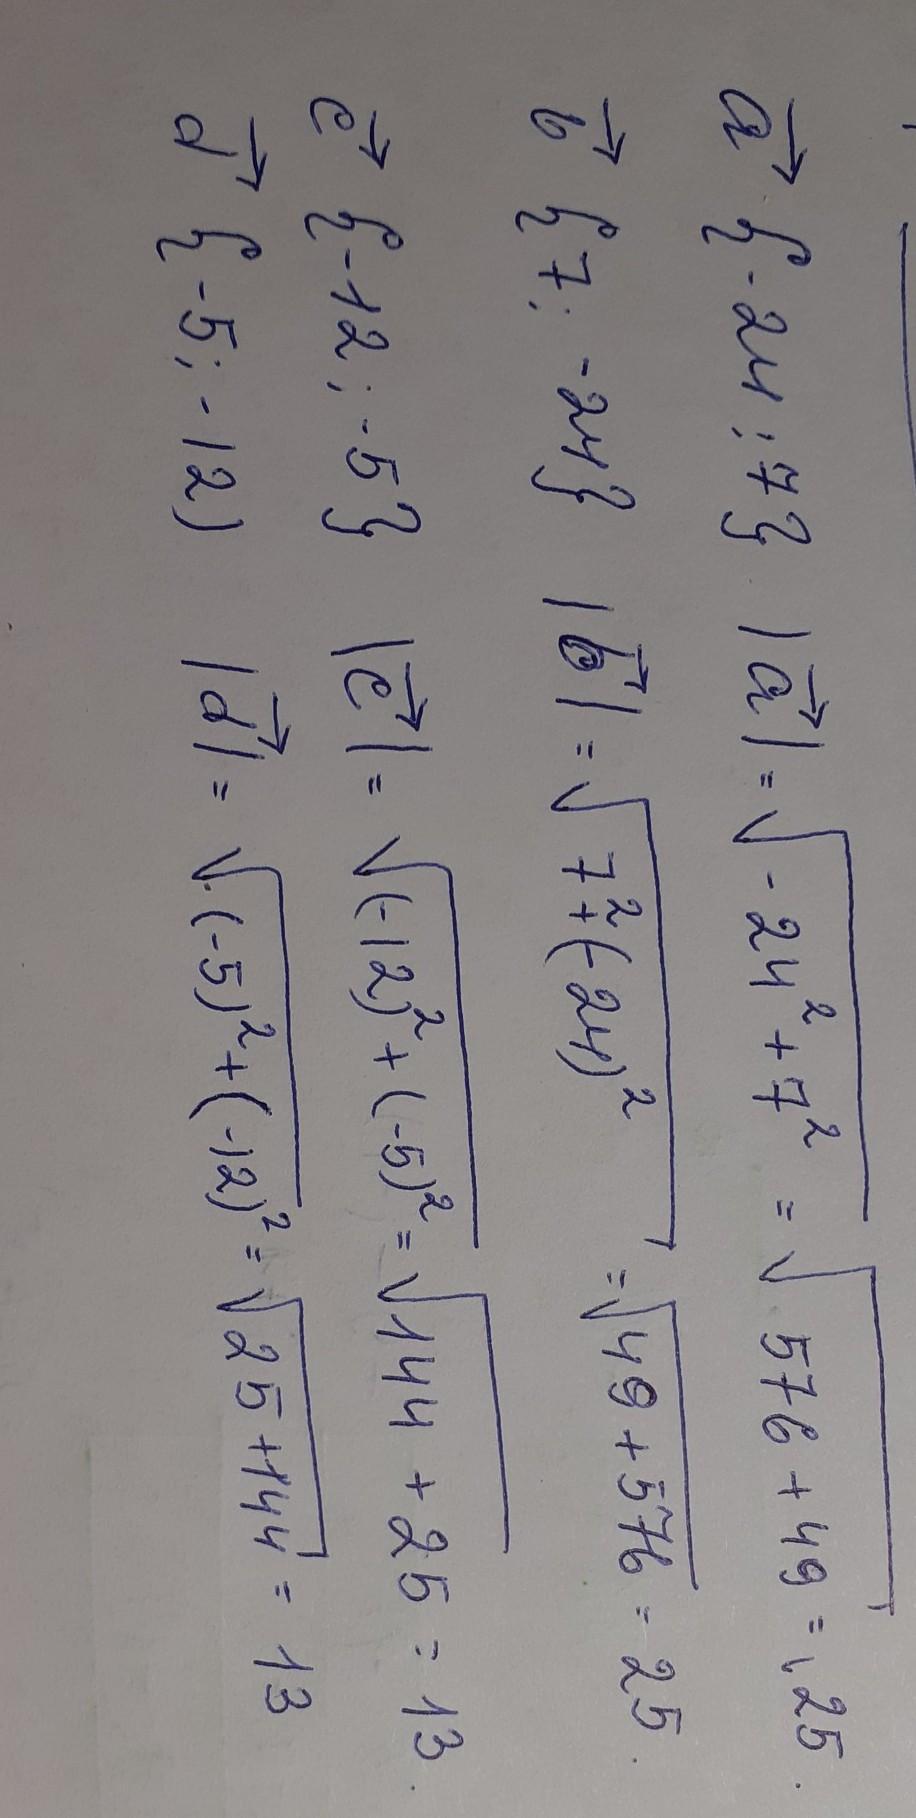 a⃗ {-24; 7} |a⃗| = √-24² + 7² = √576 + 49 = 25.
b⃗ {7; -24} |b⃗| = √7² + (-24)² = √49 + 576 = 25.
c⃗ {-12; -5} |c⃗| = √(-12)² + (-5)² = √144 + 25 = 13.
d⃗ {-5; -12) |d⃗| = √(-5)² + (-12)² = √25 + 144 = 13